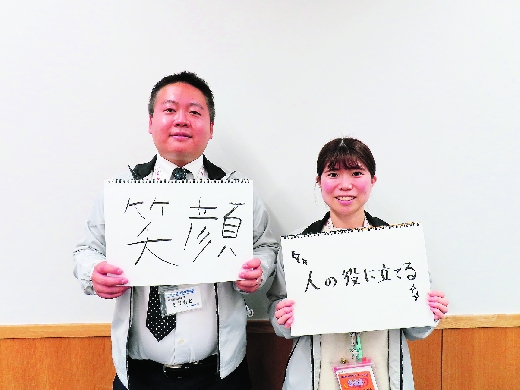 笑顔
人の役に立てる